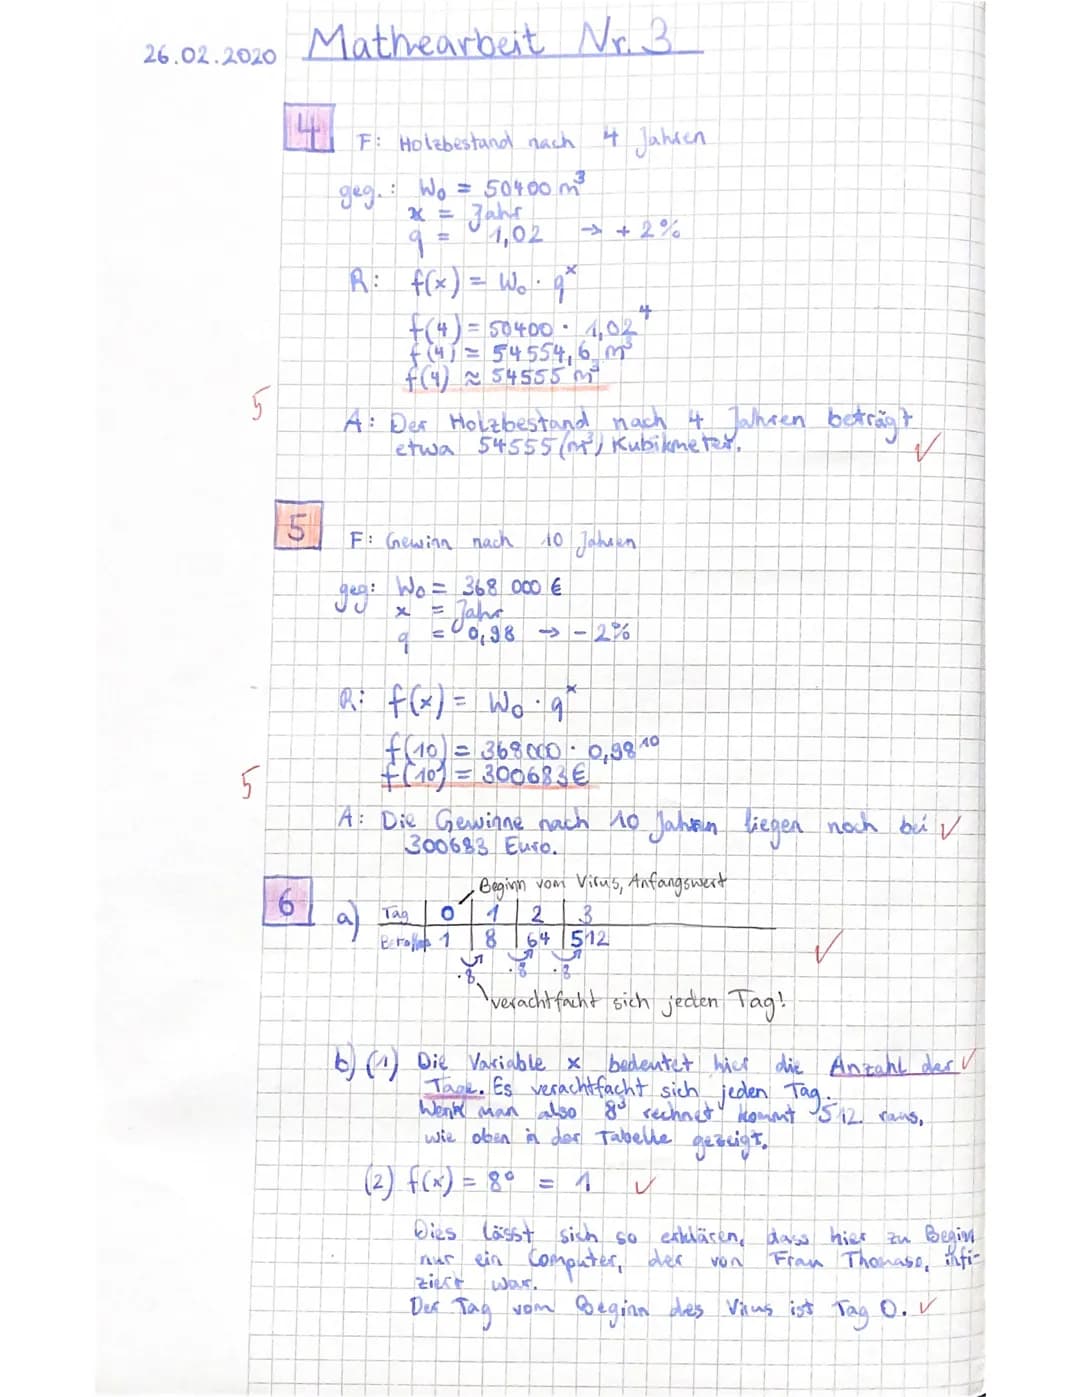 26.02.2020 Mathearbeit Nr. 3
4
F: Holzbestand nach 4 Jahren
geg.: W₀ = 50400 m³
x = Jahr
q = 1,02 → + 2%
R: f(x) = W₀ · qˣ
f(4) = 50400 · 1,02⁴
f(4) = 54554,6 m³
f(4) ≈ 54555 m³
5
A: Der Holzbestand nach 4 Jahren beträgt
etwa 54555 (m³) Kubikmeter. ✓
5
F: Gewinn nach 10 Jahren
geg: W₀ = 368 000 €
x = Jahr
q = 0,98 → - 2%
R: f(x) = W₀ · qˣ
f(10) = 368000 · 0,98¹⁰
f(10) = 300683 €
5
A: Die Gewinne nach 10 Jahren liegen noch bei ✓
300683 Euro.
6
Beginn vom Virus, Anfangswert
a) Tag 0 1 2 3
1 8 64 512 ✓
·8 ·8 ·8
verachtfacht sich jeden Tag!
b) (1) Die Variable x bedeutet hier die Anzahl der ✓
Tage. Es verachtfacht sich jeden Tag.
Wenn man also 8³ rechnet kommt 512 raus,
wie oben in der Tabelle gezeigt.
(2) f(x) = 8⁰ = 1 ✓
Dies lässt sich so erklären, dass hier zu Beginn
nur ein Computer, der von Frau Thomaso, infi-
ziert war.
Der Tag vom Beginn des Virus ist Tag 0. ✓